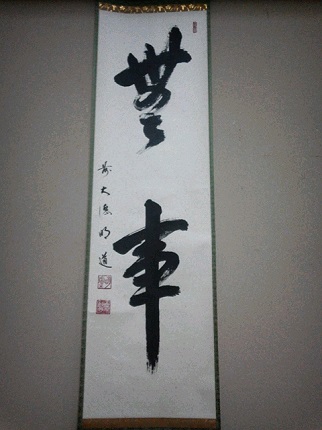 無事
前大徳明道